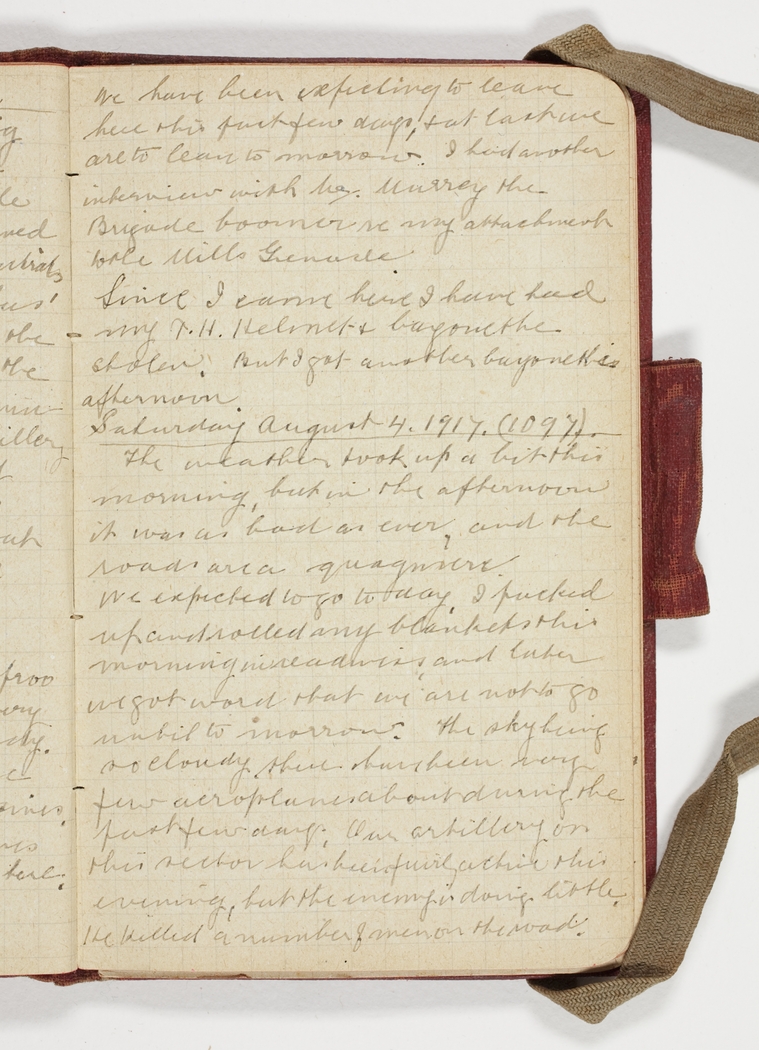 We have been expecting to leave
here this past few days, & at last we
are to leave to morrow. I had another
interview with Murrey the
Brigade boomer re my attachment
to the Mills Grenade
Since I came here I have had
my T.H. Helmet & bayonet the
stolen. But I got another bayonet this
afternoon
Saturday August 4. 1917. (1097).
The weather took up a bit this
morning, but in the afternoon
it was as bad as ever, and the
roads are a quagmire
We expected to go to day, I packed
up and rolled my blankets this
morning in readiness, and later
we got word that we are not to go
until to morrow. The sky being
so cloudy, there has been very
few aeroplanes about during the
past few days. Our artillery on
this sector has been fairly active this
evening, but the enemy is doing little.
He killed a number of men on the road.
ved
the
the
illery
very
here.